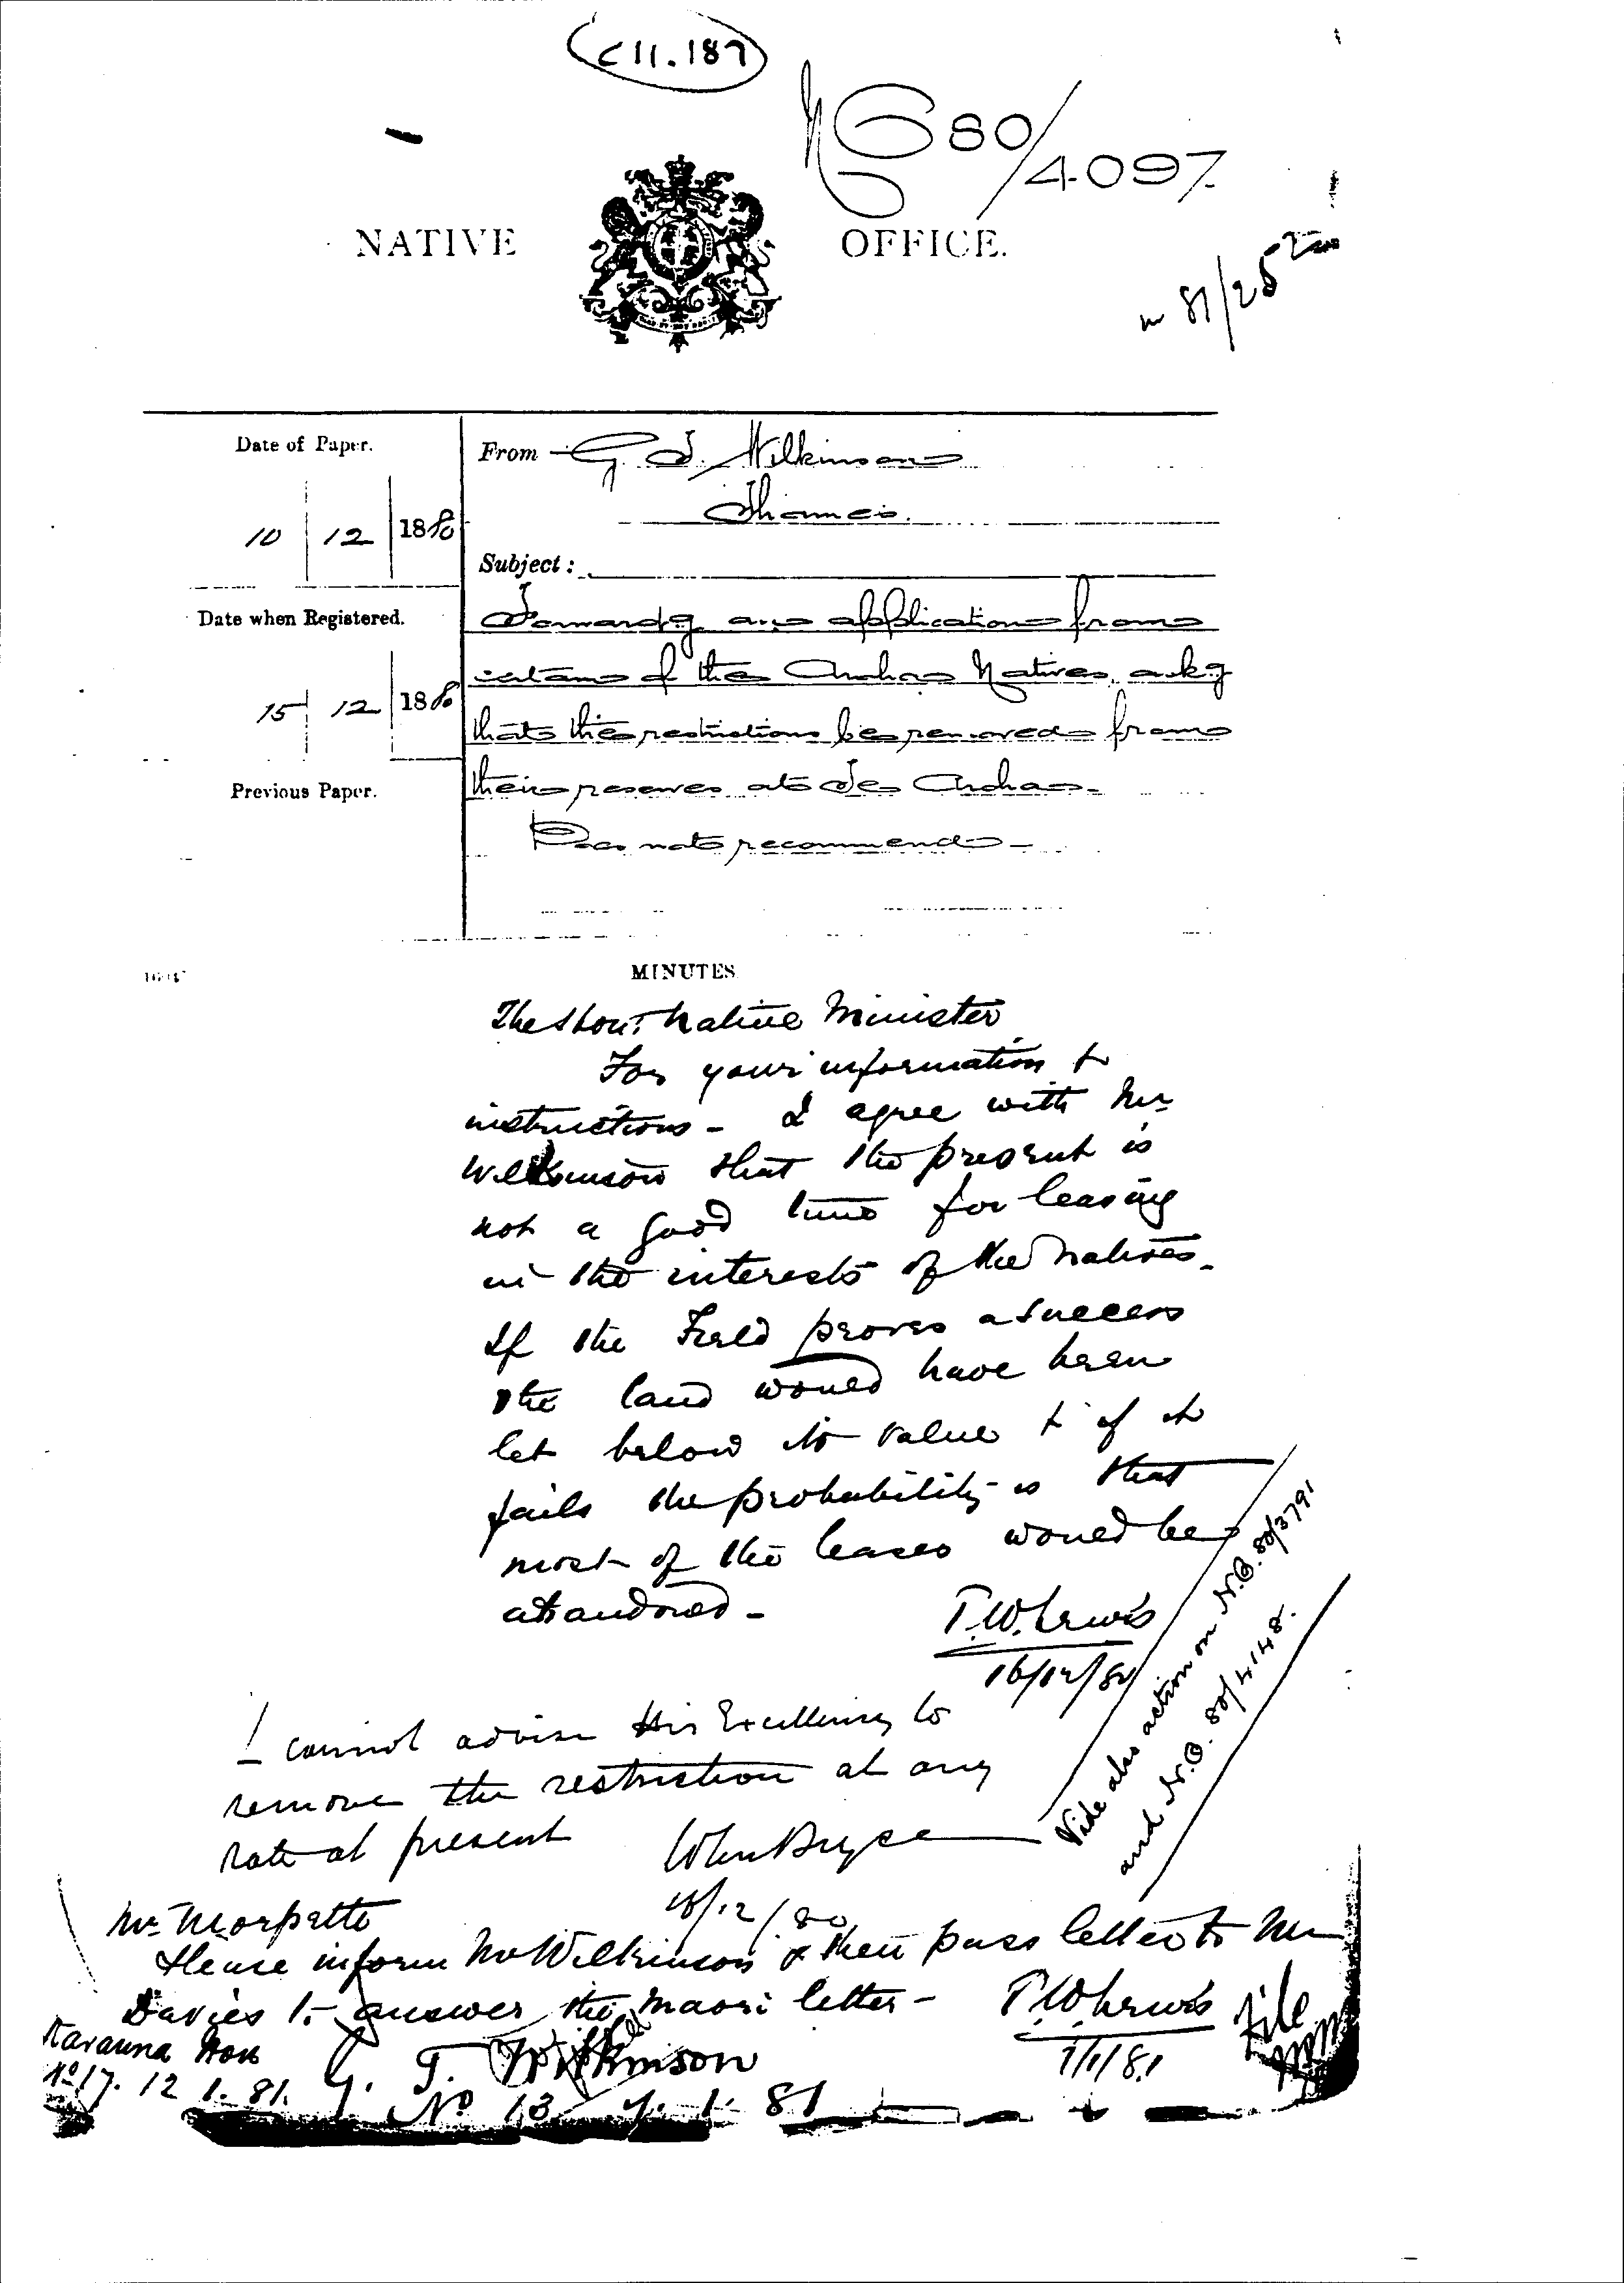 C 11.187
NO 80/4097.
NATIVE OFFICE.
81/25
Date of Paper.
From G. T. Wilkinson
Thames.
10 12 1880
Subject:
Date when Registered.
Forwardg an application from
certain of the Aroha Natives askg
15 12 1880
that the restrictions be removed from
Previous Paper.
their reserves at Te Aroha.
Does not recommend
MINUTES
The Hon. Native Minister
For your information &
instructions - I agree with Mr
Wilkinson that the present is
not a good time for leasing
in the interests of the Natives.
If the Field proves a success
the land would have been
let below its value & if it
fails the probability is that
most of the leases would be
abandoned -
T.W. Lewis
16/12/80
Vide also action on N.O. 80/3791
and N.O. 80/4148.
I cannot advise His Excellency to
remove the restriction at any
rate at present
John Bryce
18/12/80
Mr Morpeth
Please inform Mr Wilkinson & then pass letter to Mr
Davies to answer the Maori letter -
T.W. Lewis
7/1/81
File
Karauna Hou
No 17. 12 1. 81.
G. T. Wilkinson
No 13 7. 1. 81